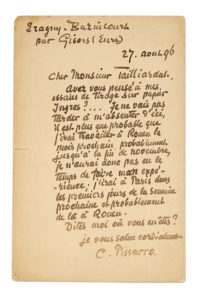 Eragny-Bazincourt
par Gisors (Eure)
27. août 96
Cher Monsieur Tailliardat
Avez vous pensé à mes
essais de tirage sur papier
Ingres ?... Je ne vais pas
tarder à m'absenter d'ici,
il est plus que probable que
j'irai travailler à Rouen le
mois prochain probablement
jusqu'à la fin de novembre,
je n'aurai donc pas eu le
temps de faire mon expé-
rience, j'irai à Paris dans
les premiers jours de la semaine
prochaine et probablement
de là à Rouen.
Dites moi où vous en êtes ?
je vous salue cordialement
C. Pissarro.